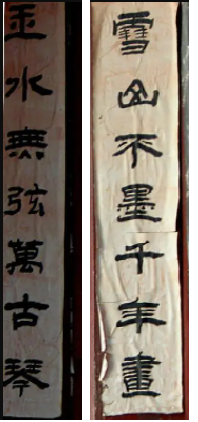 雪山不墨千年畫
玉水無弦萬古琴